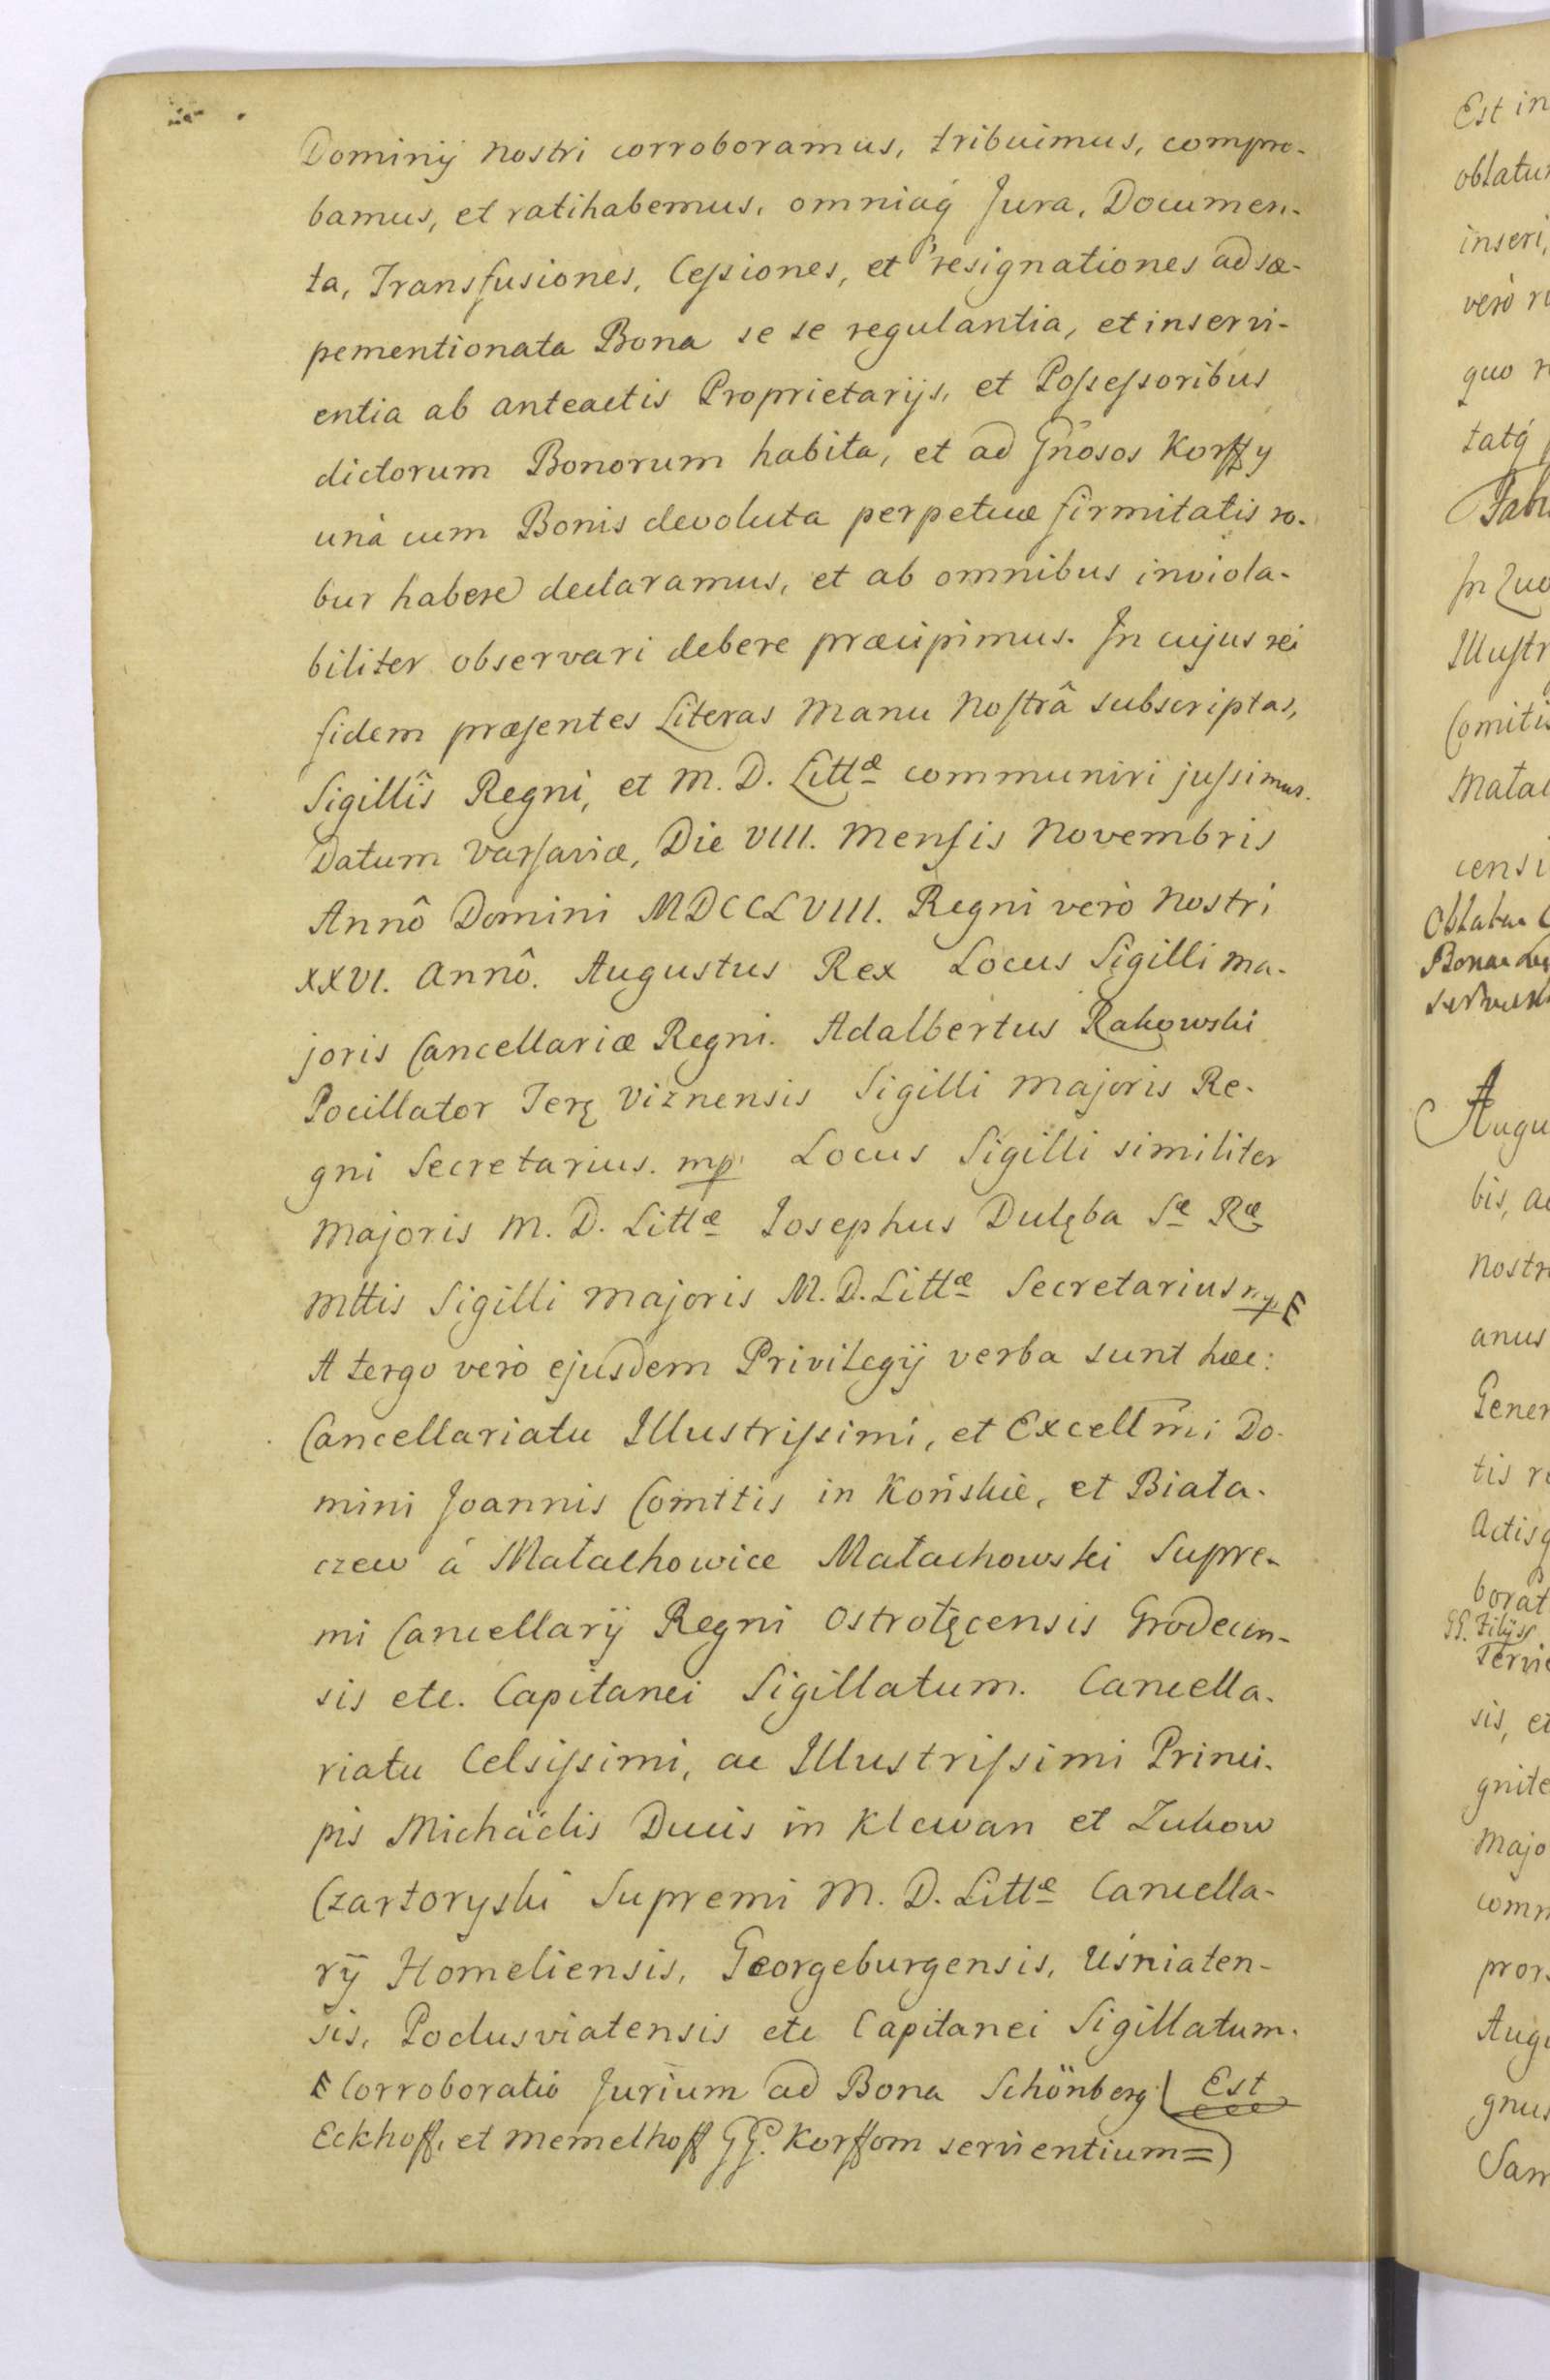 Dominij Nostri corroboramus, tribuimus, compro-
bamus, et ratihabemus, omniaq́ Jura, Documen-
ta, Transfusiones, Cessiones, et resignationes ad sæ-
pementionata Bona se se regulantia, et inservi-
entia ab anteactis Proprietarijs, et Possessoribus
dictorum Bonorum habita, et ad Gñosos Korffy
unà cum Bonis devoluta perpetuæ firmitatis ro-
bur habere declaramus, et ab omnibus inviola-
biliter observari debere præcipimus. In cujus rei
fidem præsentes Literas Manu Nostrâ subscriptas,
Sigillîs Regni, et M. D. Littæ communiri jussimus.
Datum Varsaviæ, Die VIII. Mensis Novembris
Annô Domini MDCCLVIII. Regni verò Nostri
XXVI. Annô. Augustus Rex Locus Sigilli ma-
joris Cancellariæ Regni. Adalbertus Rakowski
Pocillator Terę Viznensis Sigilli Majoris Re-
gni Secretarius. mp Locus Sigilli similiter
Majoris M. D. Littæ Josephus Dulęba Sæ Ræ
Mttis Sigilli Majoris M. D. Littæ Secretarius mp
A tergo verò ejusdem Privilegij verba sunt hæc:
Cancellariatu Illustrissimi, et Excellm̃i Do-
mini Joannis Comttis in Końskie, et Biała-
czew á Małachowice Małachowski Supre-
mi Cancellarij Regni Ostrołęcensis Grodecen-
sis etc. Capitanei Sigillatum. Cancella-
riatu Celsissimi, ac Illustrissimi Princi-
pis Michäelis Ducis in Klewan et Zukow
Czartoryski Supremi M. D. Littæ Cancella-
rij Homeliensis, Georgeburgensis, Uśniaten-
sis, Podusviatensis etc Capitanei Sigillatum.
Corroboratio Jurium ad Bona Schönberg Est
Eckhoff, et Memelhoff GG. Korffom servientium =
Est in
inseri,
quo
Comitis
censi
bis,
anus
Gener
sis, et
Majo